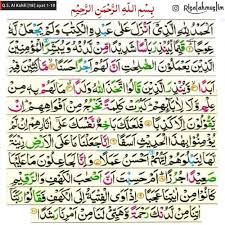 Q.S. Al Kahfi [18] ayat 1-10
بِسْمِ اللّٰهِ الرَّحْمٰنِ الرَّحِيْمِ
@Risalahmuslim
اَلْحَمْدُ لِلّٰهِ الَّذِيْٓ اَنْزَلَ عَلٰى عَبْدِهِ الْكِتٰبَ وَلَمْ يَجْعَلْ لَّهٗ
عِوَجًا ۜ قَيِّمًا لِّيُنْذِرَ بَأْسًا شَدِيْدًا مِّنْ لَّدُنْهُ وَيُبَشِّرَ الْمُؤْمِنِيْنَ
الَّذِيْنَ يَعْمَلُوْنَ الصّٰلِحٰتِ اَنَّ لَهُمْ اَجْرًا حَسَنًا مَّاكِثِيْنَ
فِيْهِ اَبَدًا وَّيُنْذِرَ الَّذِيْنَ قَالُوا اتَّخَذَ اللّٰهُ وَلَدًا مَا لَهُمْ بِهٖ
مِنْ عِلْمٍ وَّلَا لِاٰبَاۤىِٕهِمْ كَبُرَتْ كَلِمَةً تَخْرُجُ مِنْ اَفْوَاهِهِمْ اِنْ
يَّقُوْلُوْنَ اِلَّا كَذِبًا فَلَعَلَّكَ بَاخِعٌ نَّفْسَكَ عَلٰٓى اٰثَارِهِمْ اِنْ
لَّمْ يُؤْمِنُوْا بِهٰذَا الْحَدِيْثِ اَسَفًا اِنَّا جَعَلْنَا مَا عَلَى الْاَرْضِ
زِيْنَةً لَّهَا لِنَبْلُوَهُمْ اَيُّهُمْ اَحْسَنُ عَمَلًا وَاِنَّا لَجَاعِلُوْنَ مَا عَلَيْهَا
صَعِيْدًا جُرُزًا اَمْ حَسِبْتَ اَنَّ اَصْحٰبَ الْكَهْفِ وَالرَّقِيْمِ
كَانُوْا مِنْ اٰيٰتِنَا عَجَبًا اِذْ اَوَى الْفِتْيَةُ اِلَى الْكَهْفِ فَقَالُوْا رَبَّنَآ
اٰتِنَا مِنْ لَّدُنْكَ رَحْمَةً وَّهَيِّئْ لَنَا مِنْ اَمْرِنَا رَشَدًا